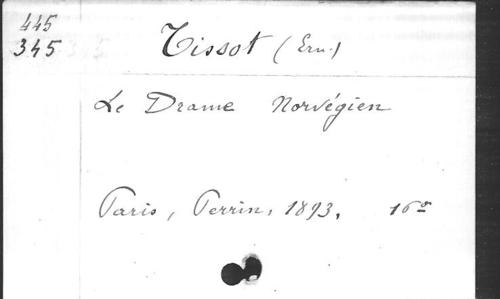 445
345 Tissot (Ern.)
Le Drame Norvégien
Paris, Perrin, 1893, 16º